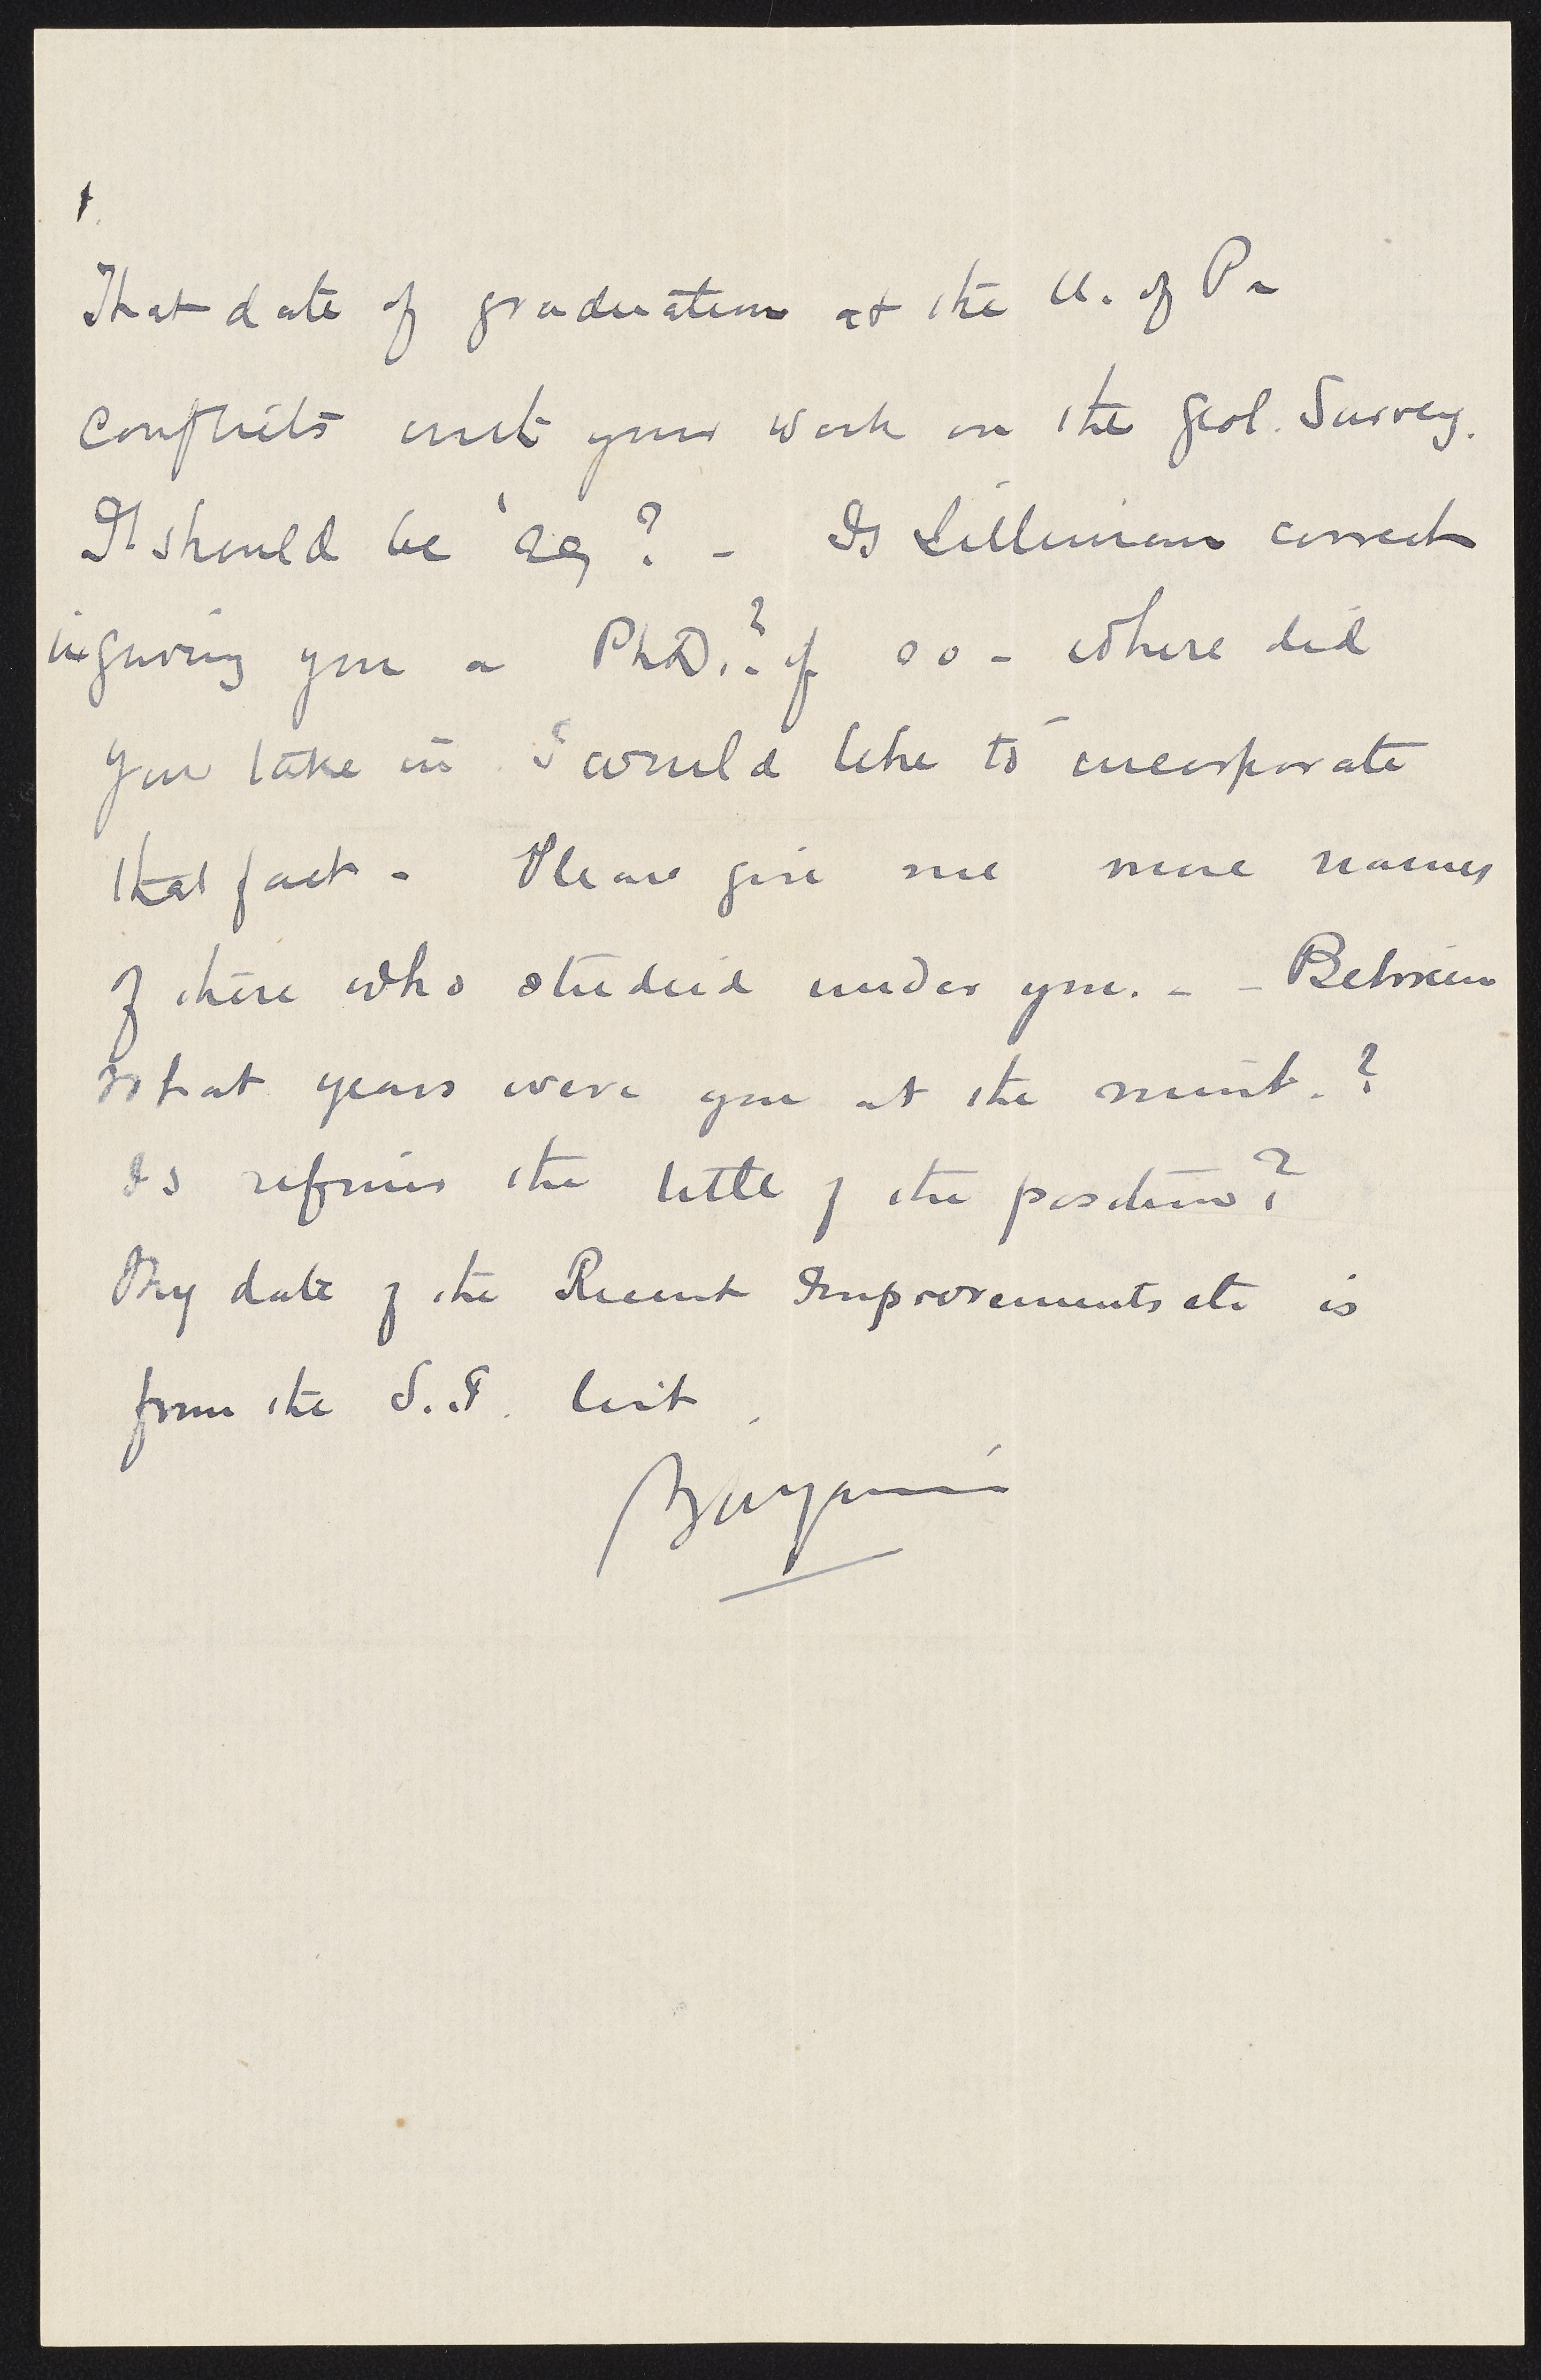 That date of graduation at the U. of Pa
conflicts with your work on the Geol. Survey.
It should be ? - Is Silliman correct
in giving you a PhD.? if so - where did
you take it I would like to incorporate
that fact - Please give me more names
of those who studied under you. - - Between
what years were you at the mint. ?
Is refiner the title of the position?
My date of the Recent Improvements etc is
from the S.I. list.
Benjamin